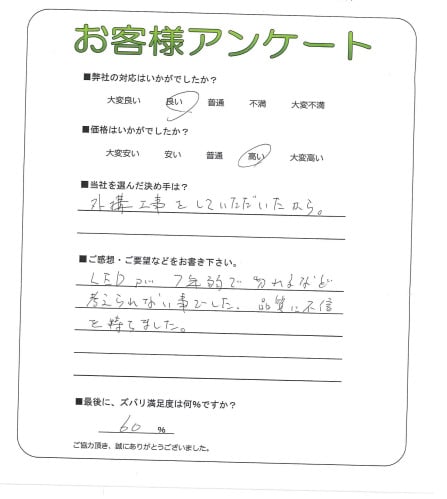 お客様アンケート
■弊社の対応はいかがでしたか?
大変良い 良い 普通 不満 大変不満
■価格はいかがでしたか?
大変安い 安い 普通 高い 大変高い
■当社を選んだ決め手は?
外構工事をしていただいたから。
■ご感想・ご要望などをお書き下さい。
LEDが7年弱で切れるなど
考えられない事でした、品質に不信
を持ちました。
■最後に、ズバリ満足度は何%ですか?
60 %
ご協力頂き、誠にありがとうございました。